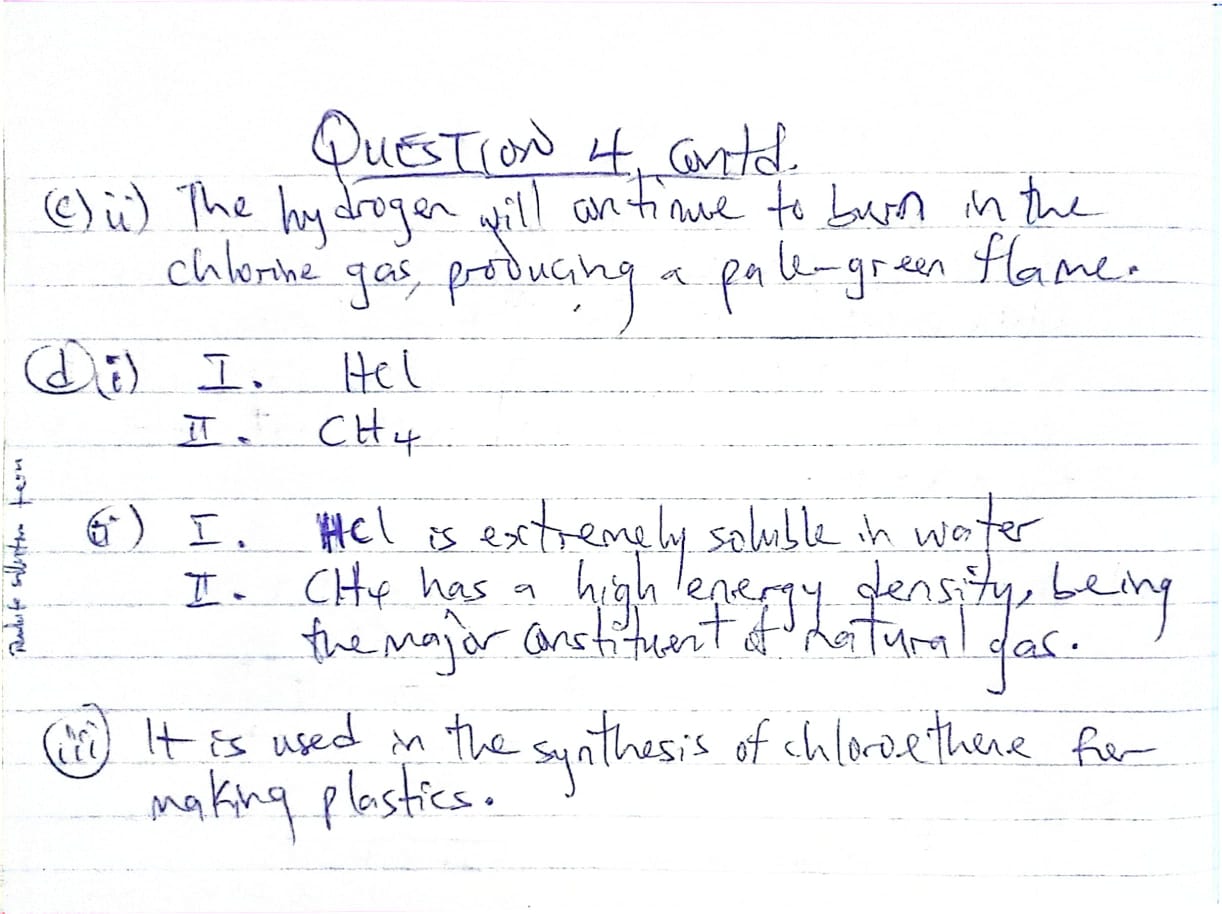 QUESTION 4, contd.
(c) ii) The hydrogen will continue to burn in the
chlorine gas, producing a pale-green flame.
(d) i) I. HCl
II. CH4
ii) I. HCl is extremely soluble in water
II. CH4 has a high energy density, being
the major constituent of natural gas.
(iii) It is used in the synthesis of chloroethene for
making plastics.